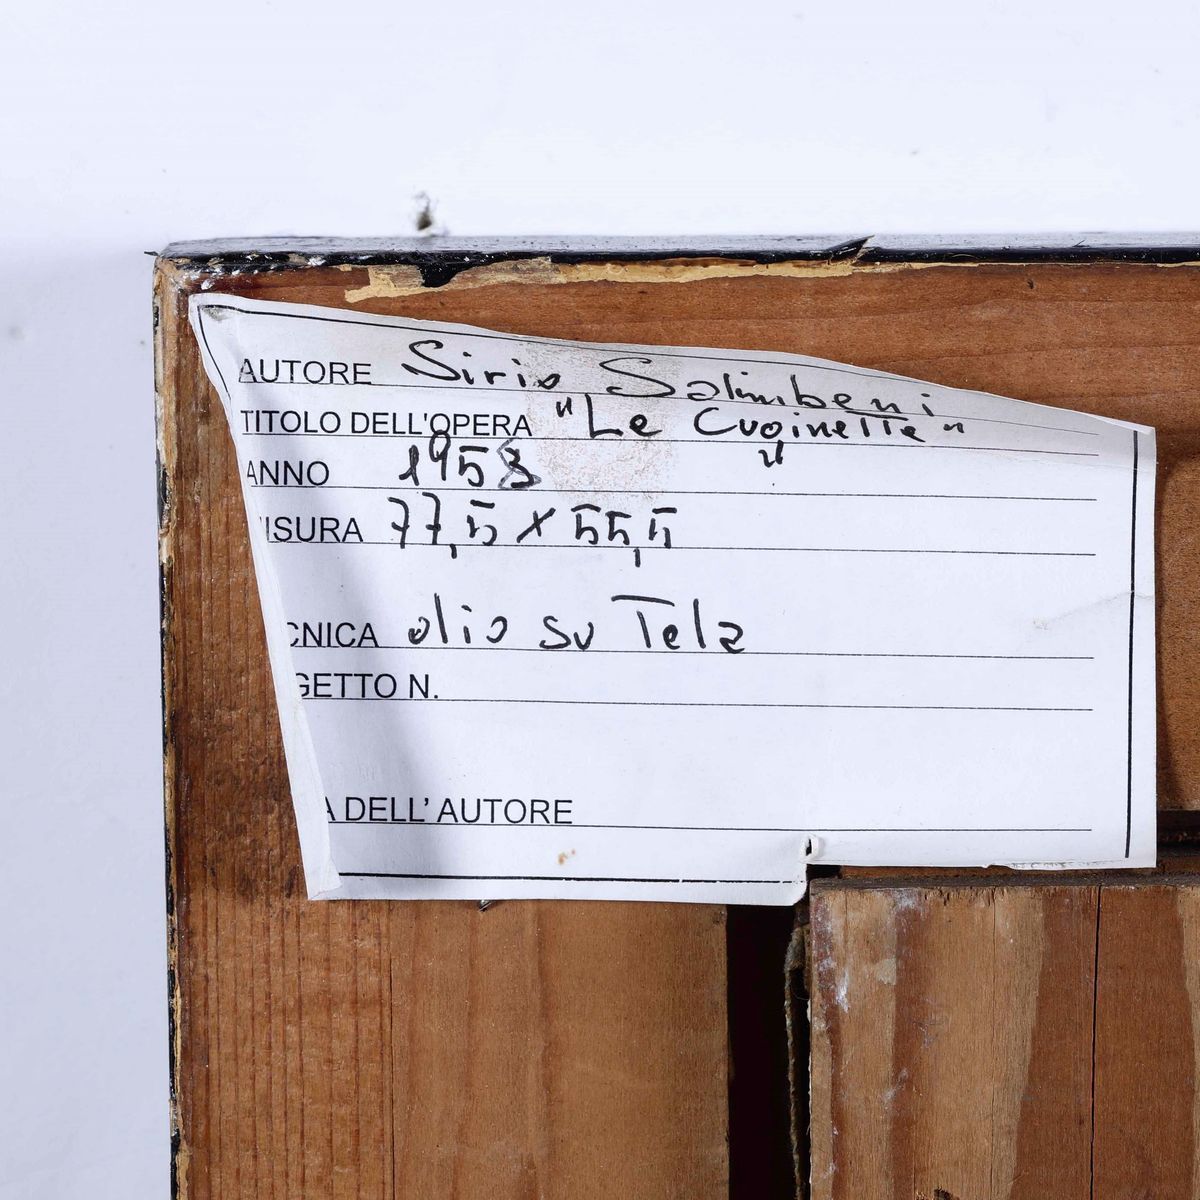 AUTORE Sirio Salimbeni
TITOLO DELL'OPERA "Le Cuginette"
ANNO 1953
ISURA 77,5 x 55,5
CNICA olio su Tela
GETTO N.
A DELL' AUTORE